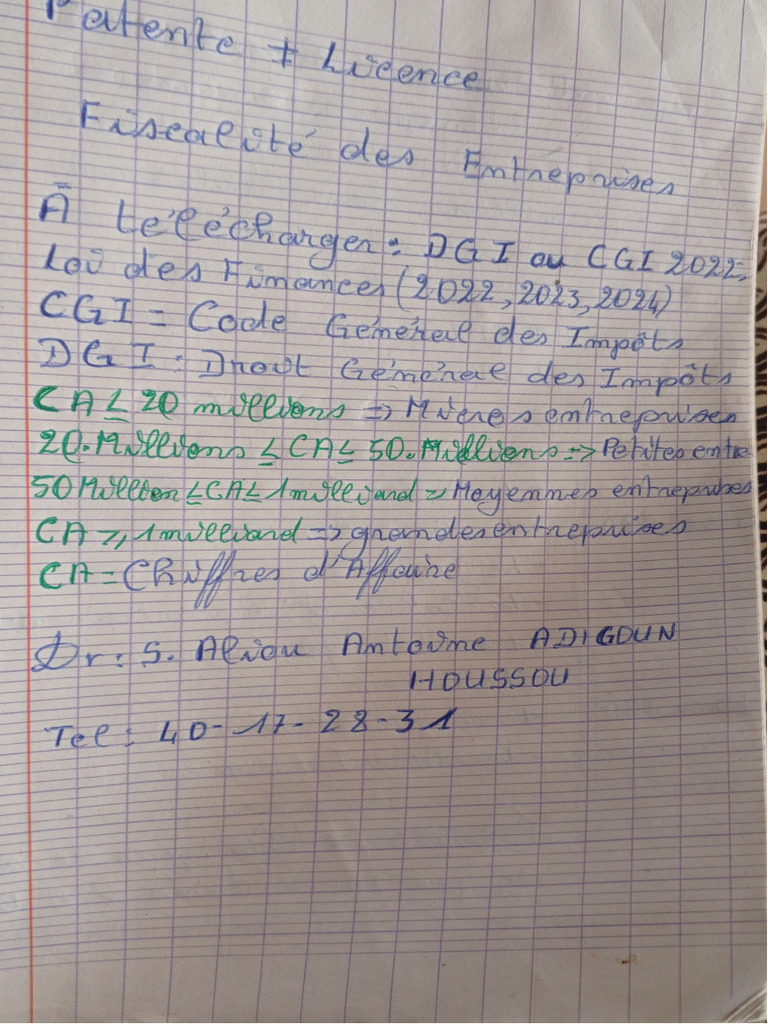 Patente ≠ Licence
Fiscalité des Entreprises
À télécharger : DGI ou CGI 2022,
Loi des Finances (2022, 2023, 2024)
CGI = Code Général des Impôts
DGI : Droit Général des Impôts
CA ≤ 20 millions => Micros entreprises
20.Millions ≤ CA ≤ 50.Millions => Petites entre
50 Million ≤ CA ≤ 1 milliard => Moyennes entreprises
CA ≥ 1 milliard => grandes entreprises
CA = Chiffres d'Affaire
Dr : S. Aliou Antoine ADIGOUN
HOUSSOU
Tel : 40-17-28-31